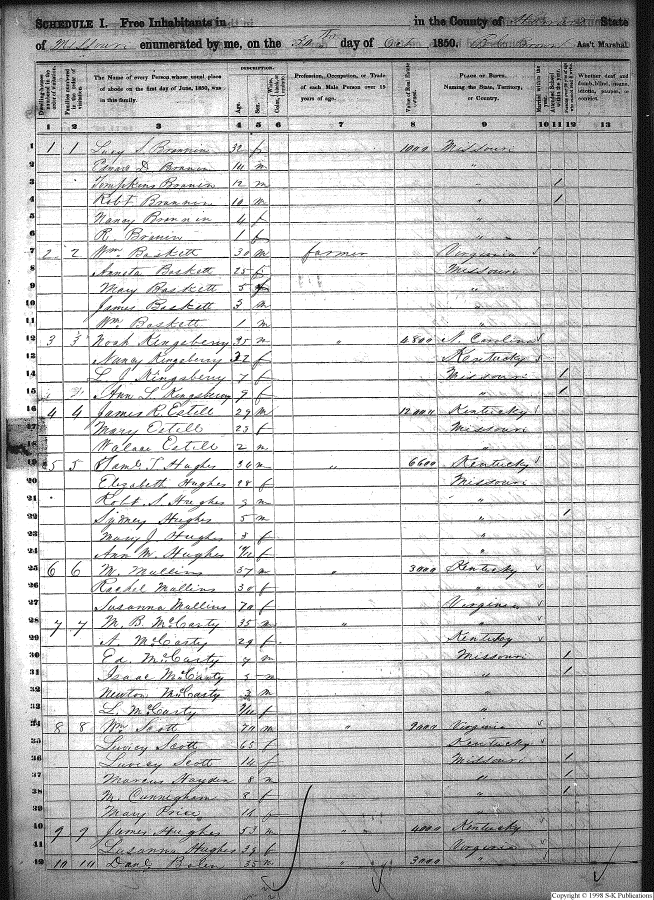 SCHEDULE I. Free Inhabitants in in the County of State
of Missouri enumerated by me, on the day of 1850. Ass't Marshal.
DESCRIPTION.
The Name of every Person whose usual place of abode on the first day of June, 1850, was in this family.
Age.
Sex.
Profession, Occupation, or Trade of each Male Person over 15 years of age.
Value of Real Estate
PLACE OF BIRTH. Naming the State, Territory, or Country.
Whether deaf and dumb, blind, insane, idiotic, pauper, or convict.
1 2 3 4 5 6 7 8 9 10 11 12 13
1 1 1 Lucy S Brannin 32 f 1000 Missouri
2 Edward D Brannin 14 m "
3 Tompkins Branin 12 m " 1
4 Robt Brannin 10 m " 1
5 Nancy Brannin 4 f "
6 R. Branin 1 f "
7 2 2 Wm Baskett 30 m farmer Virginia
8 Baskett 25 f Missouri
9 Mary Baskett 5 f "
10 James Baskett 3 m "
11 Wm Baskett 1 m "
12 3 3 Noah Kingsberry 35 m " 4800 N. Carolina
13 Nancy Kingsberry 32 f Kentucky
14 L. S. Kingsberry 7 f Missouri 1
15 Ann L Kingsberry 9 f " 1
16 4 4 James R. Estill 29 m 12000 Kentucky
17 Mary Estill 23 f Missouri
18 Walace Estill 2 m "
19 5 5 Saml T Hughes 36 m " 6600 Kentucky
20 Elizabeth Hughes 28 f Missouri
21 Robt S Hughes m "
22 Sydney Hughes 5 m " 1
23 Mary J Hughes 3 f "
24 Ann M. Hughes f "
25 6 6 M. Mullins 37 m " 3000 Kentucky
26 Rachel Mullins 30 f "
27 Susanna Mullins 70 f Virginia
28 7 7 M. B. McCarty 35 m " "
29 A. McCarty 29 f Kentucky
30 Ed. McCarty 7 m Missouri 1
31 Isaac McCarty 5 m " 1
32 Newton McCarty 3 m "
33 L. McCarty f "
34 8 8 Wm Scott 70 m " 9000 Virginia
35 Scott 65 f Kentucky
36 Scott 14 f Missouri 1
37 Marcus Hayden 8 m " 1
38 M. Cunnigham 8 f " 1
39 Mary Price f "
40 9 9 James Hughes 53 m " " 4000 Kentucky
41 Susanna Hughes f Virginia
42 10 10 35 m " 3000 "
Copyright © 1998 S-K Publications